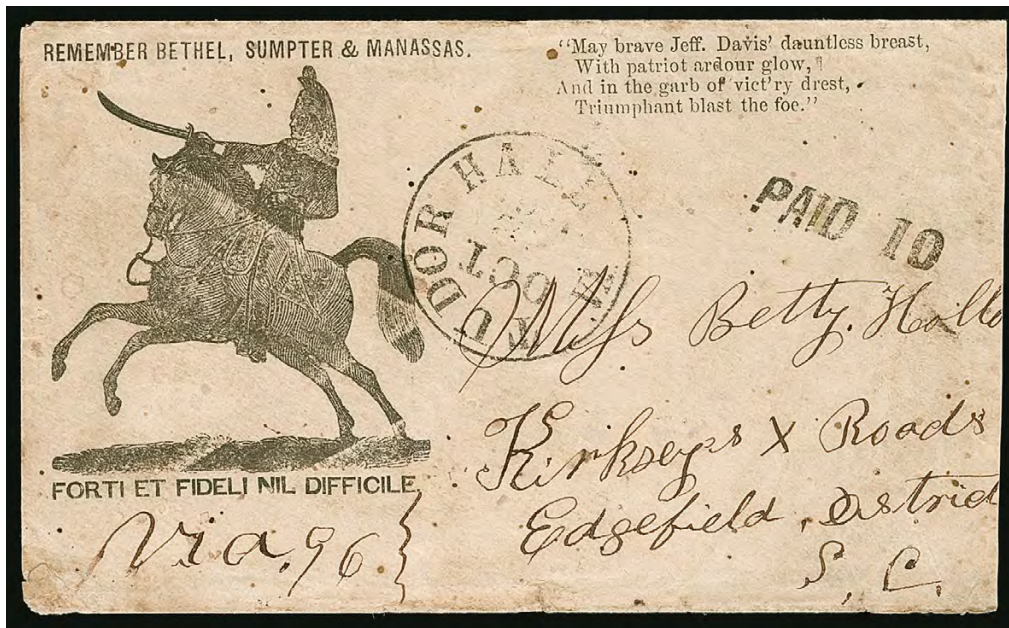 REMEMBER BETHEL, SUMPTER & MANASSAS.
"May brave Jeff. Davis' dauntless breast,
With patriot ardour glow,
And in the garb of vict'ry drest,
Triumphant blast the foe."
TUDOR HALL
OCT
PAID 10
Miss Betty Hollo
Kirkseys X Roads
Edgefield, District
S, C.
FORTI ET FIDELI NIL DIFFICILE
Via. 96